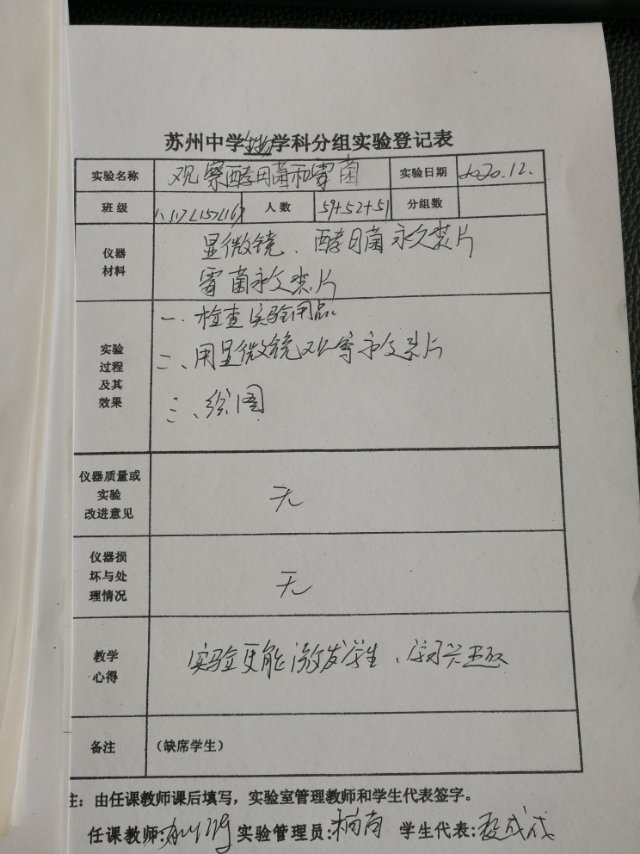 苏州中学生物学科分组实验登记表
实验名称 观察酵母菌和霉菌 实验日期 2020.12.
班级 人数 59+52+51 分组数
仪器材料 显微镜、酵母菌永久装片
霉菌永久装片
实验过程及其效果 一、检查实验用品
二、用显微镜观察永久装片
三、绘图
仪器质量或实验改进意见 无
仪器损坏与处理情况 无
教学心得 实验更能激发学生、学习兴趣
备注 (缺席学生)
注：由任课教师课后填写，实验室管理教师和学生代表签字。
任课教师: 实验管理员: 杨南 学生代表: